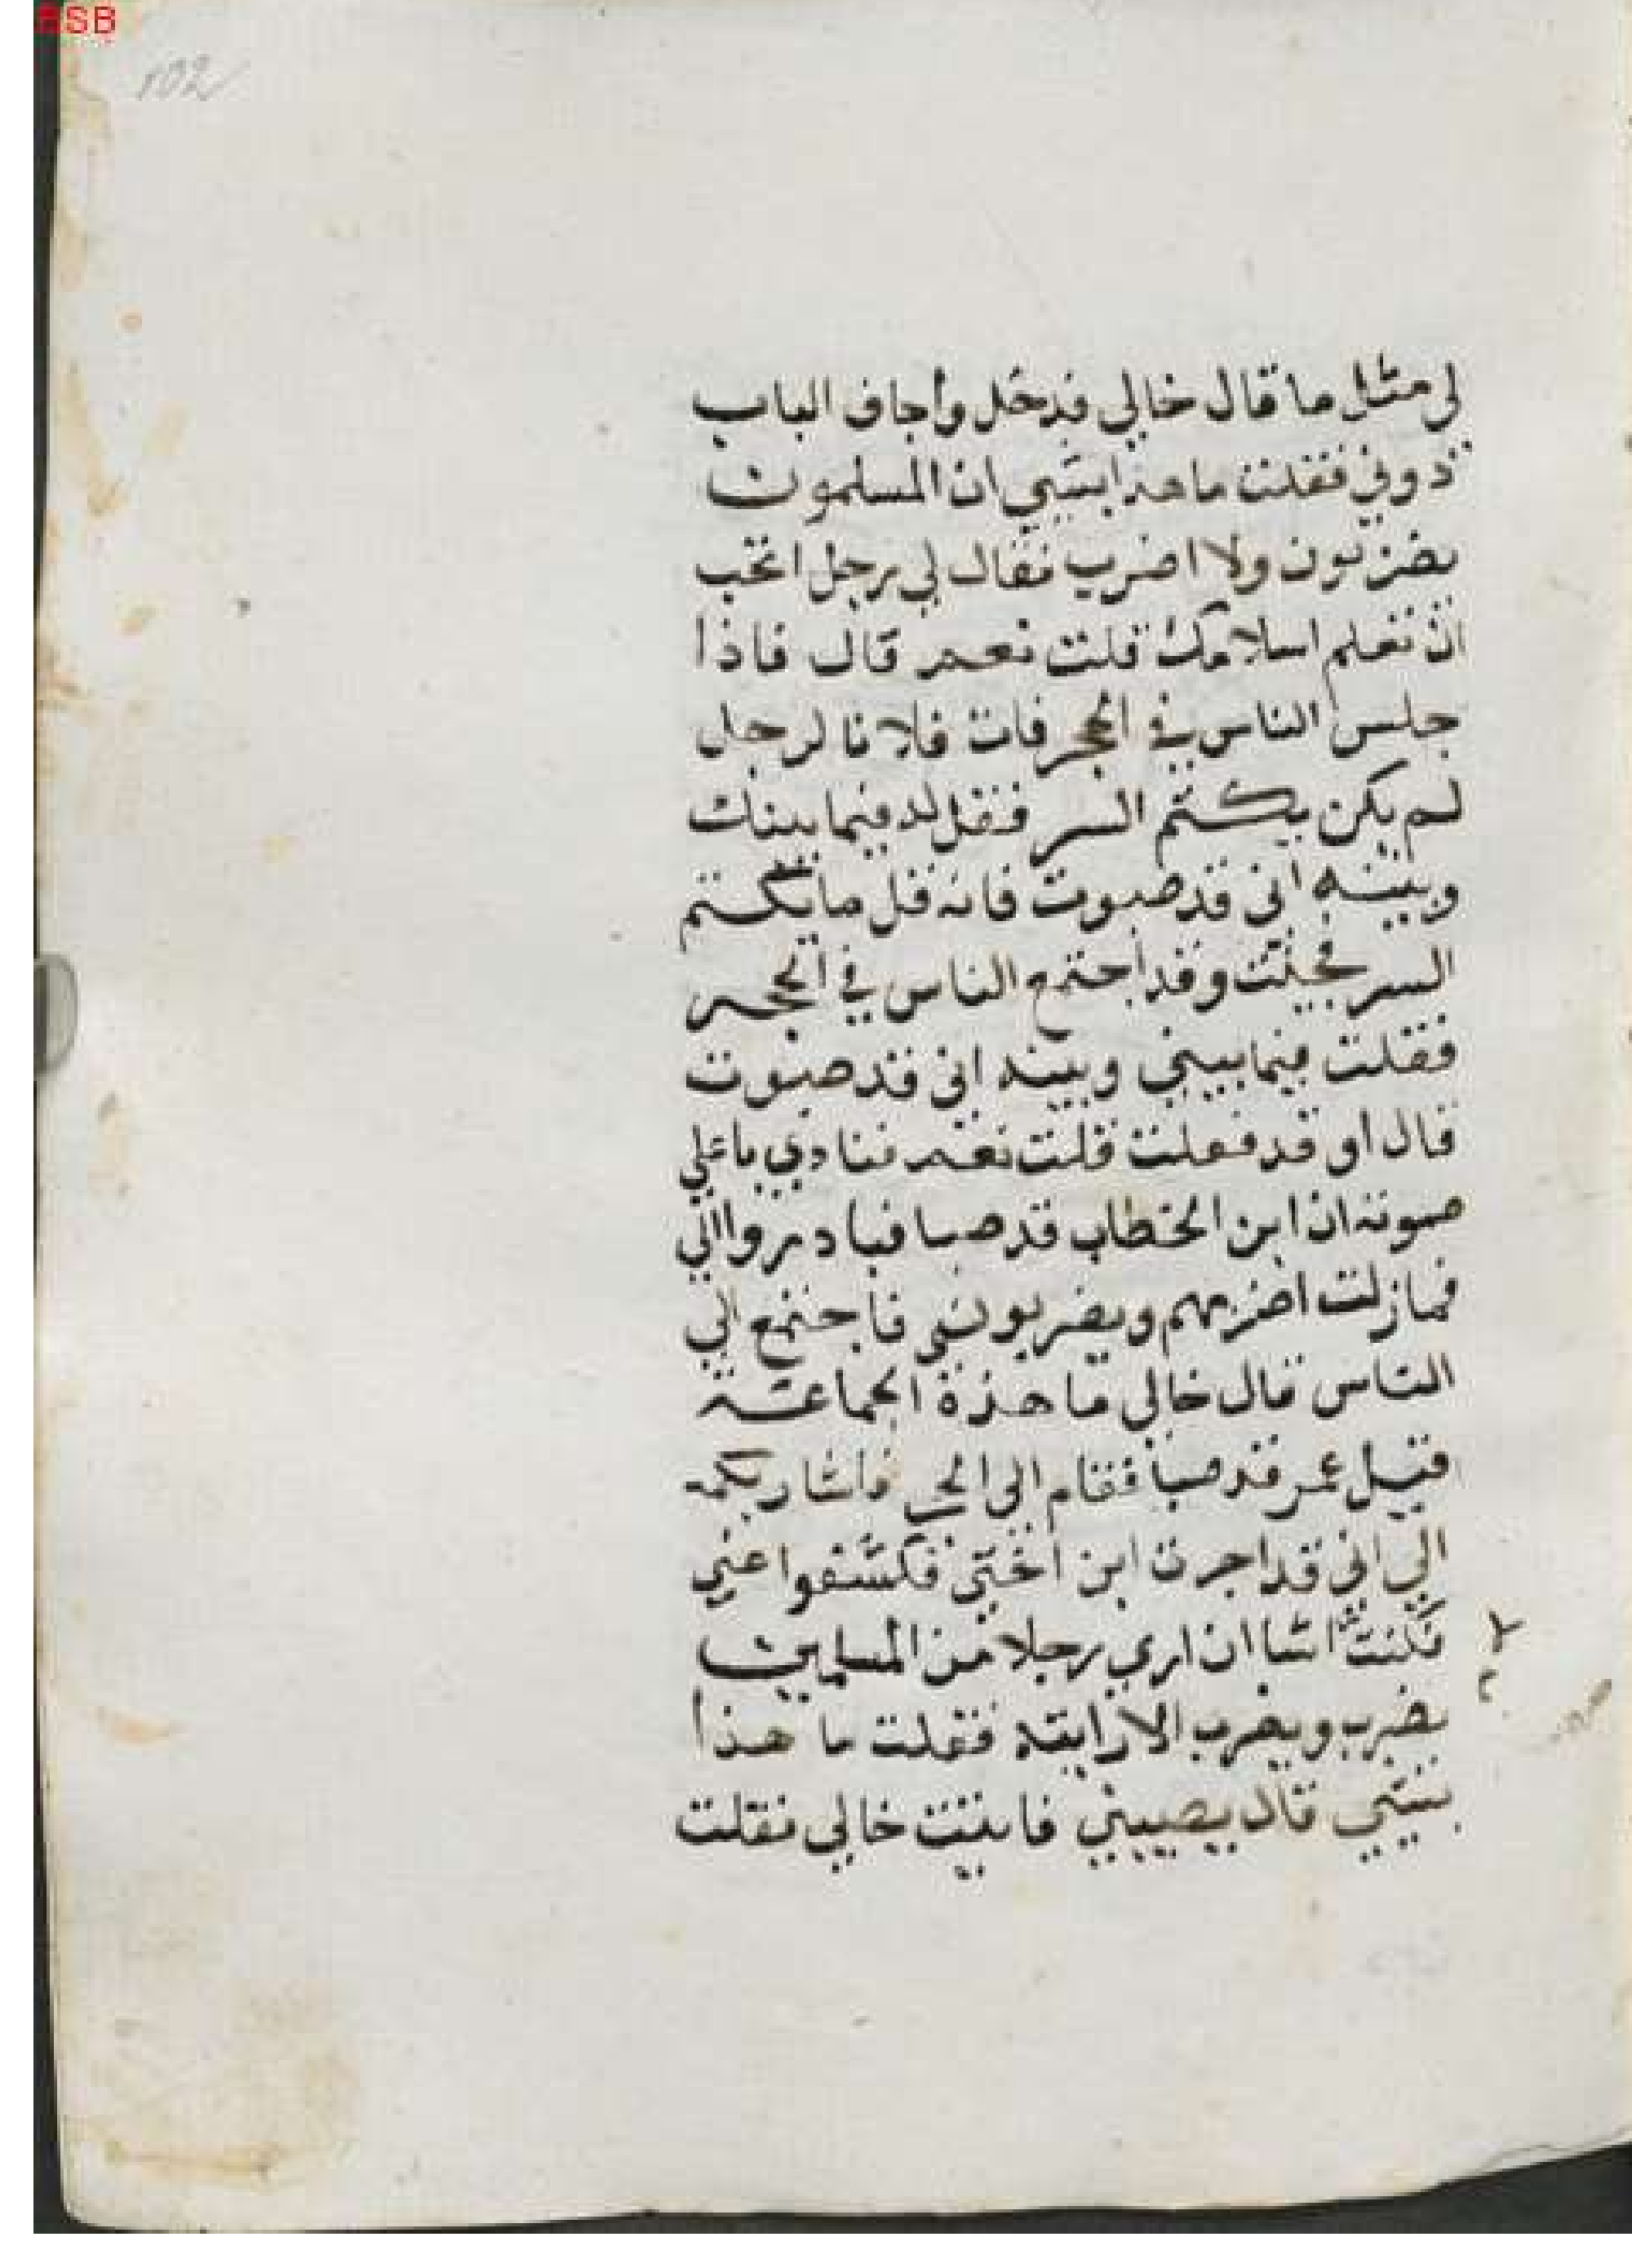 BSB
102
لي مثل ما قال خالي فدخل وأجاف الباب
دوني فقلت ما هذا بشيي ان المسلمون
يضربون ولا اضرب فقال لي رجل اتحب
ان تعلم اسلامك قلت نعم قال فاذا
جلس الناس في الحجر فات فلانا لرجل
لم يكن يكتم السر فقل له فيما بينك
وبينه اني قد صبوت فانه قل ما يكتم
السر فجيت وقد اجتمع الناس في الحجر
فقلت فيما بيني وبينه اني قد صبوت
قال او قد فعلت قلت نعم فنادي باعلي
صوته ان ابن الخطاب قد صبا فبادروا الي
فما زلت اضربهم ويضربوني فاجتمع الي
الناس قال خالي ما هذه الجماعة
فقيل عمر قد صبا فقام الى الحجر فاشار بكمه
الي اني قد اجرت ابن اختي فكشفوا عني
فكنت اشا ان اري رجلا من المسلمين
يضرب ويضرب الا رايته فقلت ما هذا
بشيي قال يصيبني فاتيت خالي فقلت